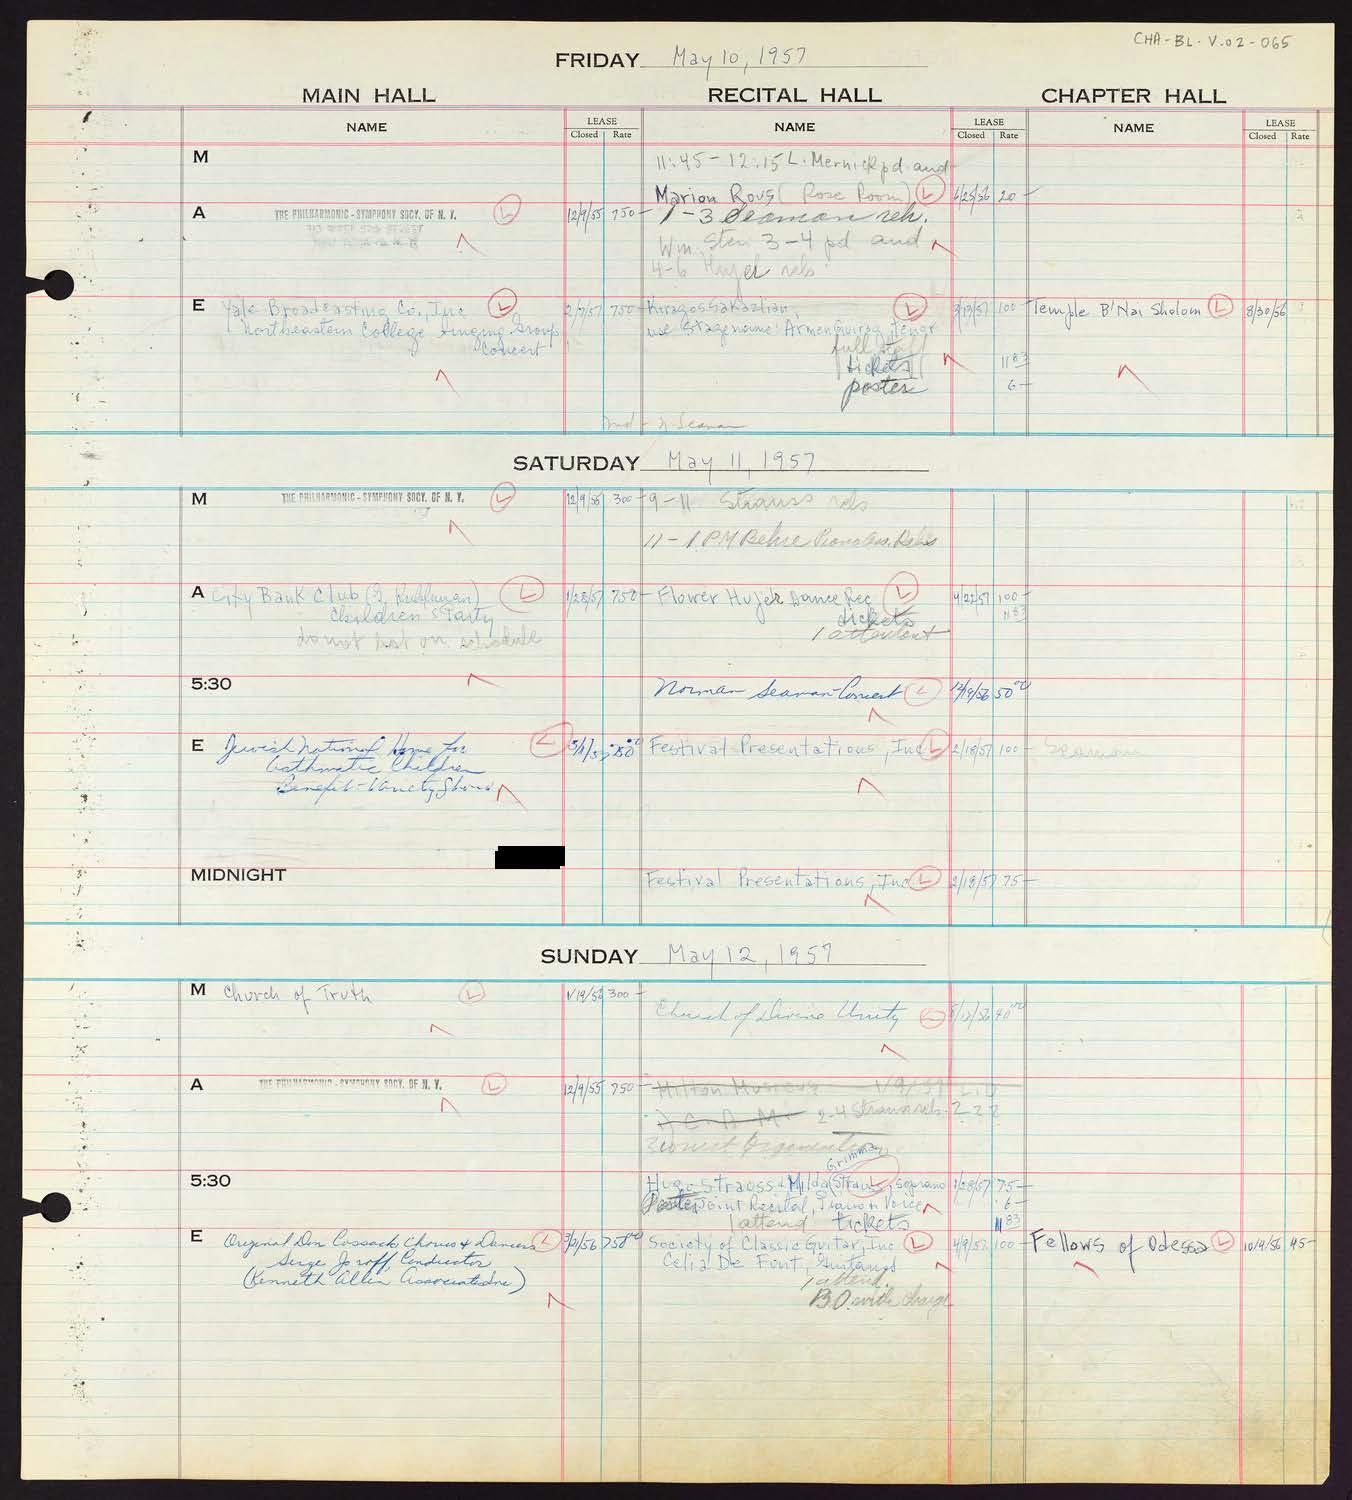 CHA-BL-V.02-065
FRIDAY May 10, 1957
MAIN HALL RECITAL HALL CHAPTER HALL
NAME LEASE Closed Rate NAME LEASE Closed Rate NAME LEASE Closed Rate
M 11:45-12:15 L. Mernick pd and
Marion Rous (Rose Room) L 6/25/56 20-
A THE PHILHARMONIC-SYMPHONY SOCY. OF N. Y. L 12/9/55 750- 1-3 Seaman reh.
Wm. 3-4 pd and
4-6 Hujer rehs
E Yale Broadcasting Co., Inc L 2/7/57 750- Kiragos Sakazlian, L 3/13/57 100- Temple B'Nai Sholom L 8/30/56
Northeastern College Singing Group use Stage name: Armen Guirag, tenor
Concert full staff
tickets 11 83
poster 6-
Seaman
SATURDAY May 11, 1957
M THE PHILHARMONIC-SYMPHONY SOCY. OF N. Y. L 12/9/55 300- 9-11 Strauss rehs
11-1 PM Behre Piano Ass. Rehs
A City Bank Club L 1/28/57 750- Flower Hujer Dance Rec L 4/22/57 100-
Children's Party tickets 11 83
do not list on schedule 1 attendent
5:30 Norman Seaman-Concert L 12/19/56 50 00
E Jewish National Home for L Festival Presentations, Inc L 2/18/57 100- Seaman
Asthmatic Children
Benefit-Variety Show
MIDNIGHT Festival Presentations, Inc L 2/18/57 75-
SUNDAY May 12, 1957
M Church of Truth L 300-
Church of Divine Unity L 40 00
A THE PHILHARMONIC-SYMPHONY SOCY. OF N. Y. L 12/9/55 750- Milton 1/9/57
2-4 Strauss reh. ???
Zionist Organization
Grimma
5:30 Hugo Strauss & Milda Strauss, soprano L 1/28/57 75-
Poster Joint Recital, Piano & Voice 6-
1 attend tickets 11 83
E Original Don Cossack Chorus & Dancers L 750 00 Society of Classic Guitar, Inc L 4/9/57 100- Fellows of Odessa L 10/9/56 45-
Serge Jaroff, Conductor Celia De Font, Guitarist
(Kenneth Allen Associates Inc) 1 attend.
B.O. with charge